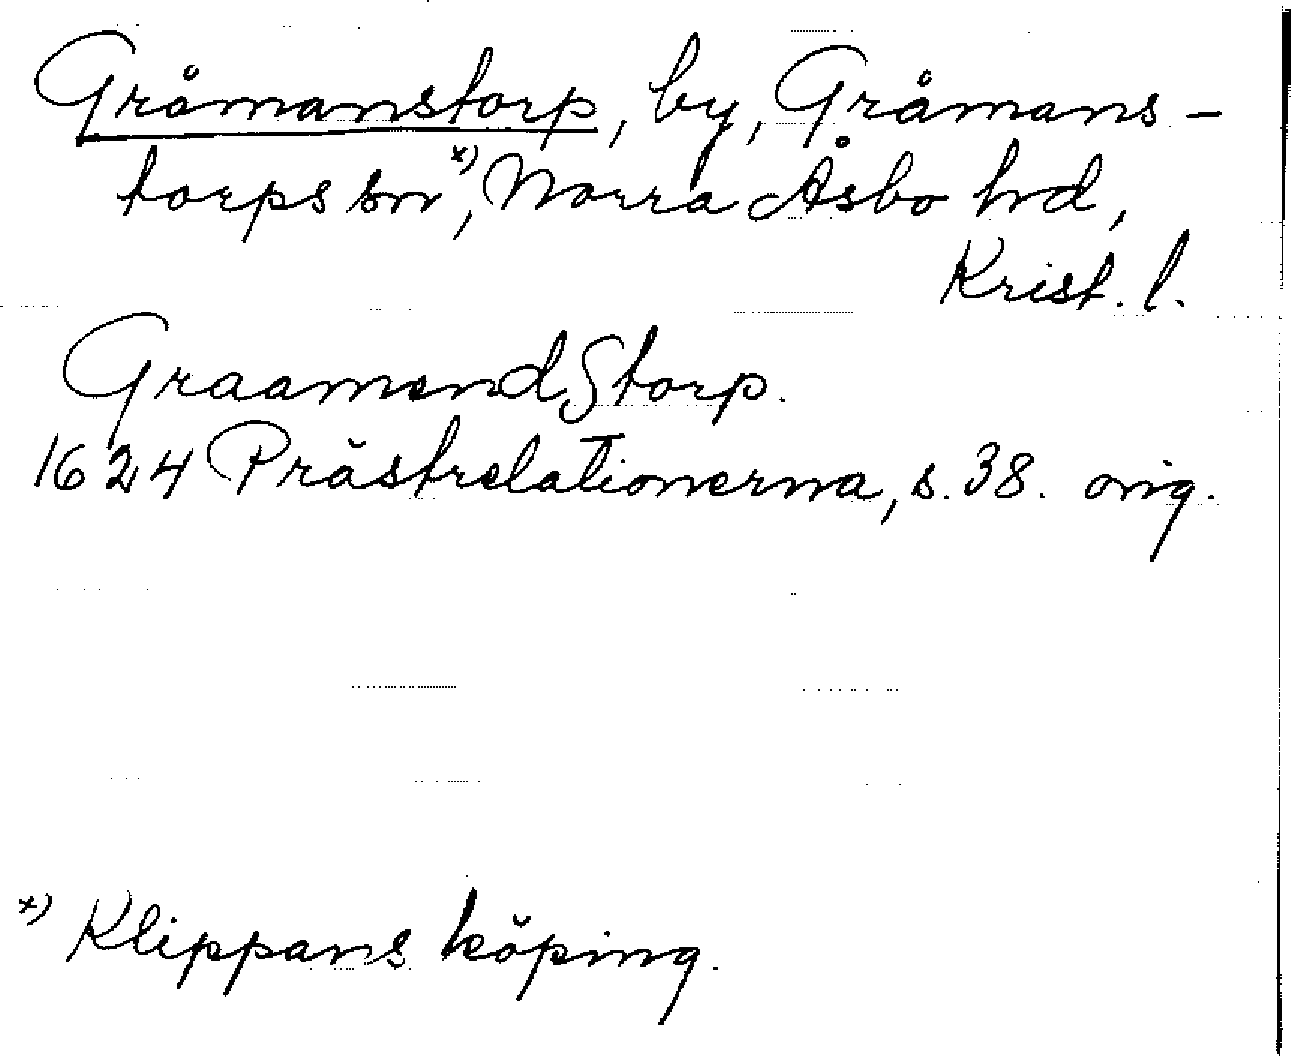 Gråmanstorp, by, Gråmans-
torps sn*), Norra Åsbo hd,
Krist. l.
GraamandStorp.
1624 Prästrelationerna, s. 38. orig.
*) Klippans köping.